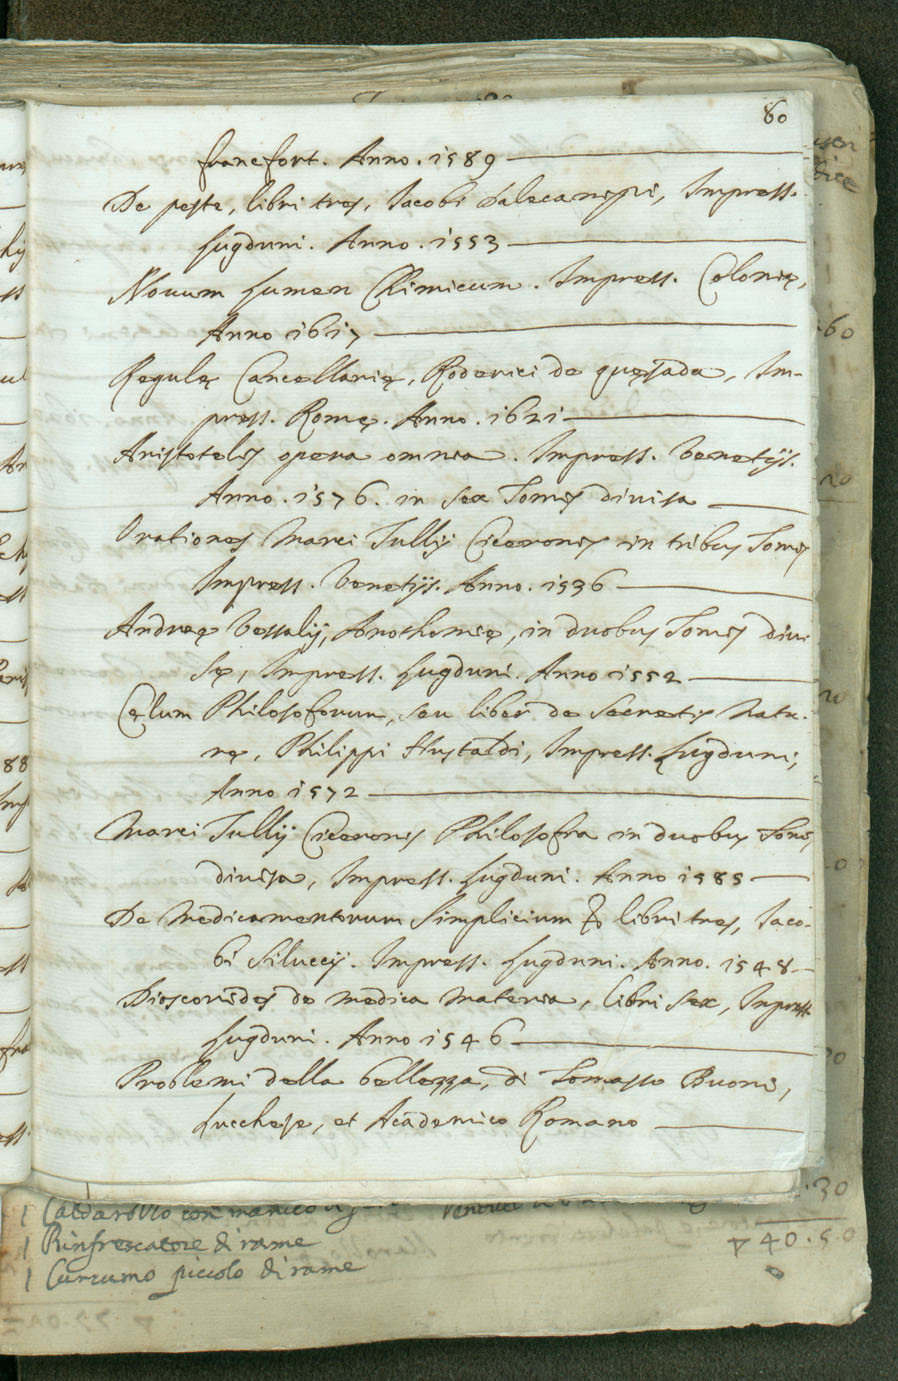 60
francfort. Anno. 1589
De peste, libri tres, Jacobi Dalecampij, Impress.
Lugduni. Anno. 1553
Nouum Lumen Chimicum. Impress. Colonię,
Anno 1617
Regulę Cancellarię, Roderici de quęsada, Im-
press. Romę. Anno. 1621
Aristotelis opera omnia. Impress. Venetijs.
Anno. 1576. in sex Tomis diuisa
Orationes Marci Tullij Ciceronis in tribus Tomis
Impress. Venetijs. Anno. 1536
Andreę Vessalij, Anothomię, in duobus Tomis diui
sę, Impress. Lugduni. Anno 1552
Cęlum Philosoforum, seu liber de Secretis Natu-
rę, Philippi Hustaldi, Impress. Lugduni,
Anno 1572
Marci Tullij Ciceronis Philosofia in duobus Tomis
diuisa, Impress. Lugduni. Anno 1585
De Medicamentorum Simplicium libri tres, Jaco-
bi Siluccij. Impress. Lugduni. Anno. 1548
Dioscorides de medica materia, libri sex, Impress.
Lugduni. Anno 1546
Problemi della bellezza, di Tomasso Buoni,
Lucchese, et Academico Romano
30
1 Caldarollo con manico
1 Rinfrescatore di rame
40.50
1 Cuzumo piccolo di rame